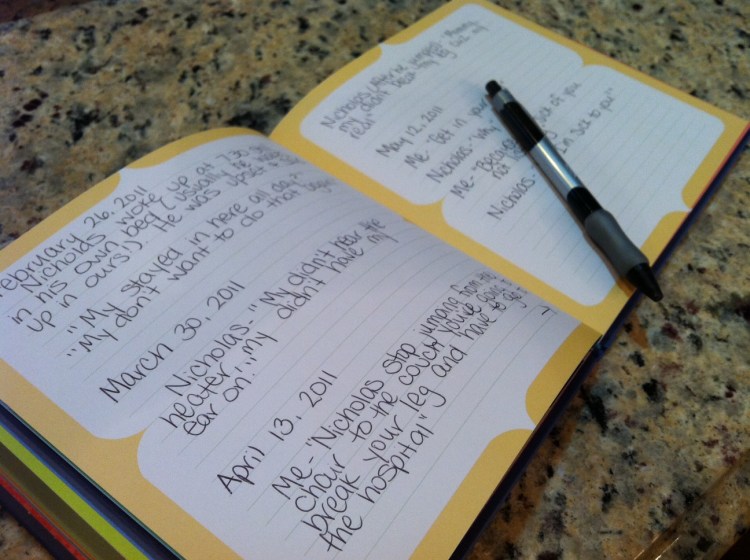 February 26, 2011
Nicholas woke up at 7:30
in his own bed (usually he wakes
up in ours!). He was upset
"My stayed in here all day.
"My don't want to do that again
March 30, 2011
Nicholas- "My didn't hear the
heater... my didn't have my
ear on."
April 13, 2011
Me- "Nicholas stop jumping from the
chair to the couch you're going to
break your leg and have to go to
the hospital"
Nicholas
my didn't my leg
real"
May 12, 2011
Me- "Get in your
Nicholas- "Why
of you
Me- "Because
Nicholas- sick to you"